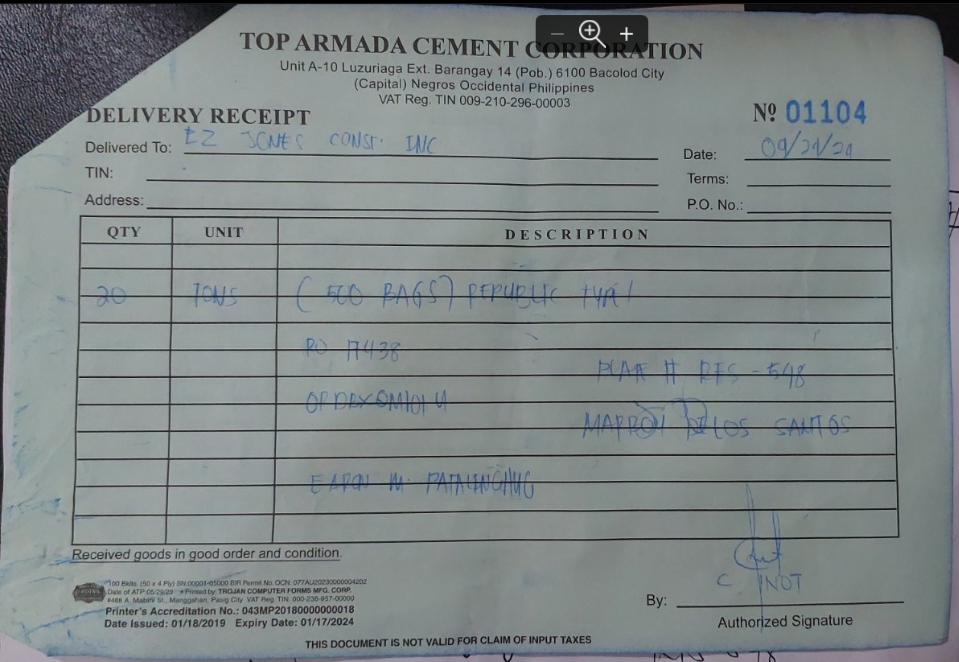 TOP ARMADA CEMENT CORPORATION
Unit A-10 Luzuriaga Ext. Barangay 14 (Pob.) 6100 Bacolod City
(Capital) Negros Occidental Philippines
VAT Reg. TIN 009-210-296-00003
DELIVERY RECEIPT Nº 01104
Delivered To: EZ JONES CONST. INC Date:
TIN: Terms:
Address: P.O. No.:
QTY UNIT DESCRIPTION
20 TONS (500 BAGS) REPUBLIC TYPE 1
PO 17438
PLATE # RFS - 548
DELOS SANTOS
M.
Received goods in good order and condition.
100 Bklts. (50 x 4 Ply) SN:00001-05000 BIR Permit No. OCN: 077AU20230000004202
Date of ATP 05/29/23 * Printed by: TROJAN COMPUTER FORMS MFG. CORP.
#468 A. Mabini St., Manggahan, Pasig City VAT Reg. TIN: 000-236-957-00000
Printer's Accreditation No.: 043MP20180000000018
Date Issued: 01/18/2019 Expiry Date: 01/17/2024
By:
Authorized Signature
THIS DOCUMENT IS NOT VALID FOR CLAIM OF INPUT TAXES